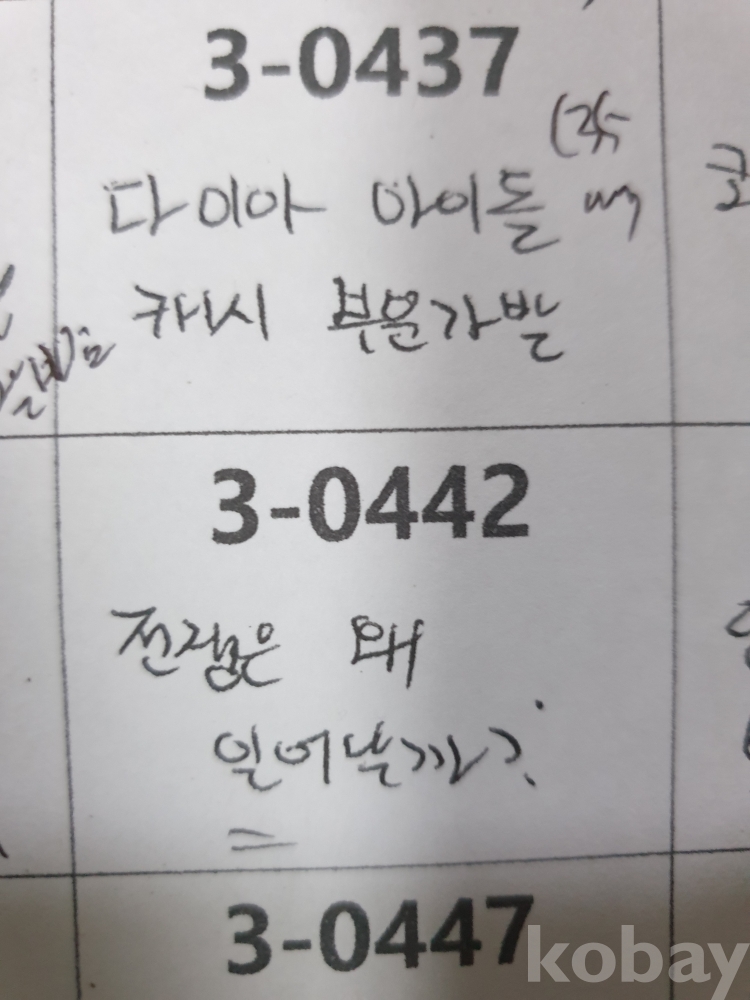 3-0437
다이아 아이돌
캐시 부분가발
3-0442
전쟁은 왜
일어날까?
3-0447
kobay